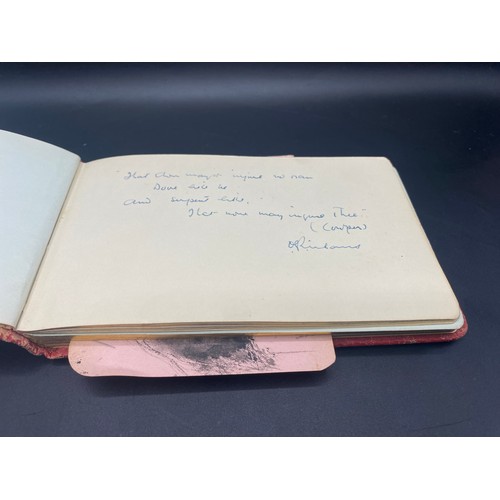 "That thou mayst injure no man
Dove like be
and serpent like,
That none may injure Thee"
(Cowper)